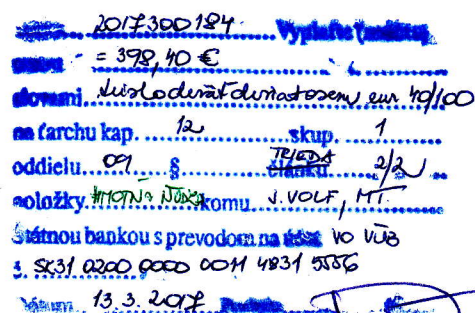 2017300184 Vyplaťte (zaúčtuj)
= 398,40 €
slovami tristodeväťdesiatosem eur 40/100
na ťarchu kap. 12 skup. 1
oddielu 09 § TRIEDA článku 2/2
položky HMOTNÁ NÚDZA komu J. VOLF, MT.
Štátnou bankou s prevodom na účet VO VÚB
č. SK31 0200 0000 0011 4831 5556
Dátum 13.3.2017